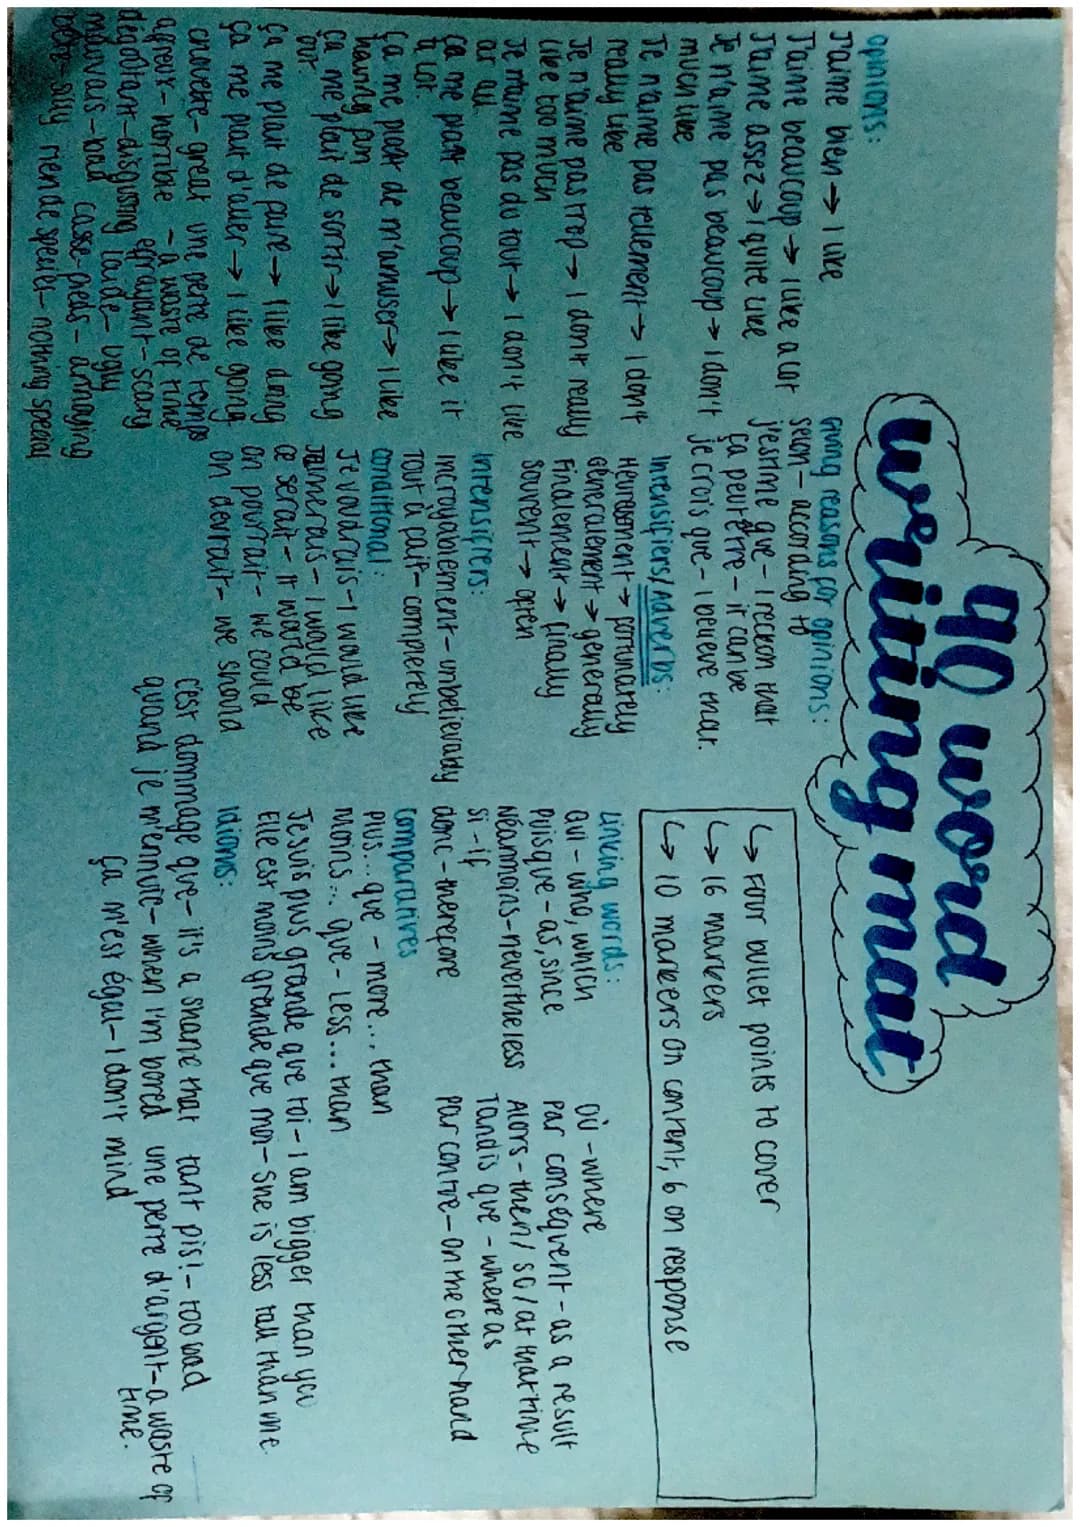 90 word
writing mat
↳ Four bullet points to cover
↳ 16 markers
↳ 10 markers on content, 6 on response
opinions:
J'aime bien → I like
J'aime beaucoup → I like a lot
J'aime assez → I quite like
Je n'aime pas beaucoup → I don't
much like
Je n'aime pas tellement → I don't
really like
Je n'aime pas trop → I don't really
like too much
Je n'aime pas du tout → I don't like
at all
Ça me plaît beaucoup → I like it
a lot.
Ça me plaît de m'amuser → I like
having fun
Ça me plaît de sortir → I like going
out.
Ça me plaît de faire → I like doing
Ça me plaît d'aller → I like going
chouette - great une perte de temps
affreux - horrible - a waste of time
dégoûtant - disgusting effrayant - scary
mauvais - bad laide - ugly
bête - silly casse-pieds - annoying
rien de special - nothing special
Giving reasons for opinions:
selon - according to
j'estime que - I reckon that
ça peut être - it can be
je crois que - I believe that.
Intensifiers/Adverbs:
Heureusement → fortunately
Généralement → generally
Finalement → finally
Souvent → often
Intensifiers:
Incroyablement - unbelievably
Tout à fait - completely
Conditional:
Je voudrais - I would like
J'aimerais - I would like
ce serait - it would be
on pourrait - we could
on devrait - we should
Linking words:
Qui - who, which
Puisque - as, since
Néanmoins - nevertheless
si - if
donc - therefore
Où - where
Par conséquent - as a result
Alors - then / so / at that time
Tandis que - whereas
Par contre - on the other hand
Comparatives
Plus... que - more... than
Moins... que - less... than
Je suis plus grande que toi - I am bigger than you
Elle est moins grande que moi - She is less tall than me.
Idioms:
C'est dommage que - it's a shame that tant pis! - too bad
quand je m'ennuie - when I'm bored une perte d'argent - a waste of
time.
ça m'est égal - I don't mind